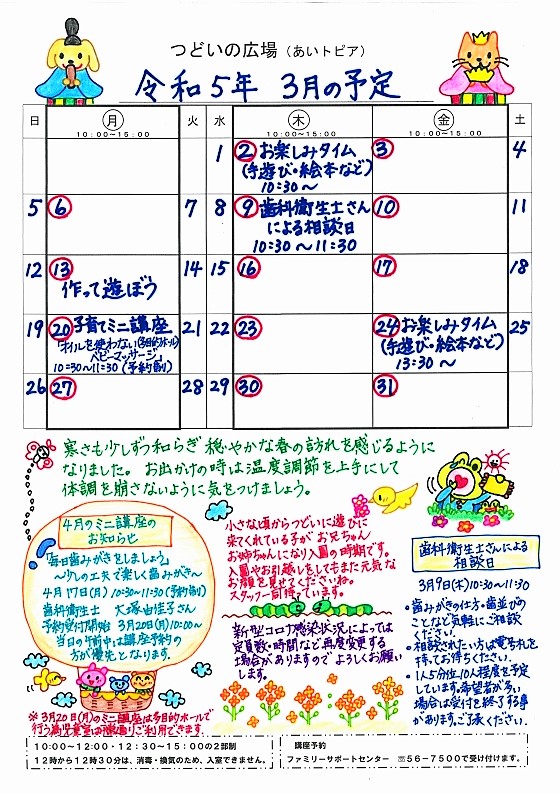 つどいの広場（あいトピア）
令和5年 3月の予定
日 月 火 水 木 金 土
10:00~15:00 10:00~15:00 10:00~15:00
1 2 お楽しみタイム 3 4
(手遊び・絵本など)
10:30～
5 6 7 8 9 歯科衛生士さん 10 11
による相談日
10:30～11:30
12 13 14 15 16 17 18
作って遊ぼう
19 20 子育てミニ講座 21 22 23 24 お楽しみタイム 25
「オイルを使わない(多目的ホール)
ベビーマッサージ」
10:30～11:30(予約制)
(手遊び・絵本など)
13:30～
26 27 28 29 30 31
寒さも少しずつ和らぎ 穏やかな春の訪れを感じるように
なりました。 お出かけの時は温度調節を上手にして
体調を崩さないように気をつけましょう。
4月のミニ講座の
お知らせ
「毎日歯みがきをしましょう」
～少しの工夫で楽しく歯みがき～
4月17日(月)10:30～11:30(予約制)
歯科衛生士 大塚由佳子さん
予約受付開始 3月20日(月)10:00～
当日の午前中は講座予約の
方が優先となります。
※3月20日(月)のミニ講座は多目的ホールで
行う為児童室は
ご利用できます。
小さな頃からつどいに遊びに
来てくれている子が お兄ちゃん
お姉ちゃんになり入園の時期です。
入園やお引越しをしてもまた元気な
お顔を見せてくださいね。
スタッフ一同待っています。
新型コロナ感染状況によっては
定員数・時間など再度変更する
場合がありますので よろしくお願い
します。
歯科衛生士さんによる
相談日
3月9日(木)10:30～11:30
・歯みがきの仕方・歯並びの
ことなど気軽にご相談
ください。
・相談されたい方は電号札を
持ってお待ちください。
・1人5分位、10人程度を予定
しています。希望者が多い
場合は受付を終了する事
があります。ご了承ください。
10:00~12:00・12:30~15:00の2部制
12時から12時30分は、消毒・換気のため、入室できません。
講座予約
ファミリーサポートセンター ☏56-7500で受け付けます。